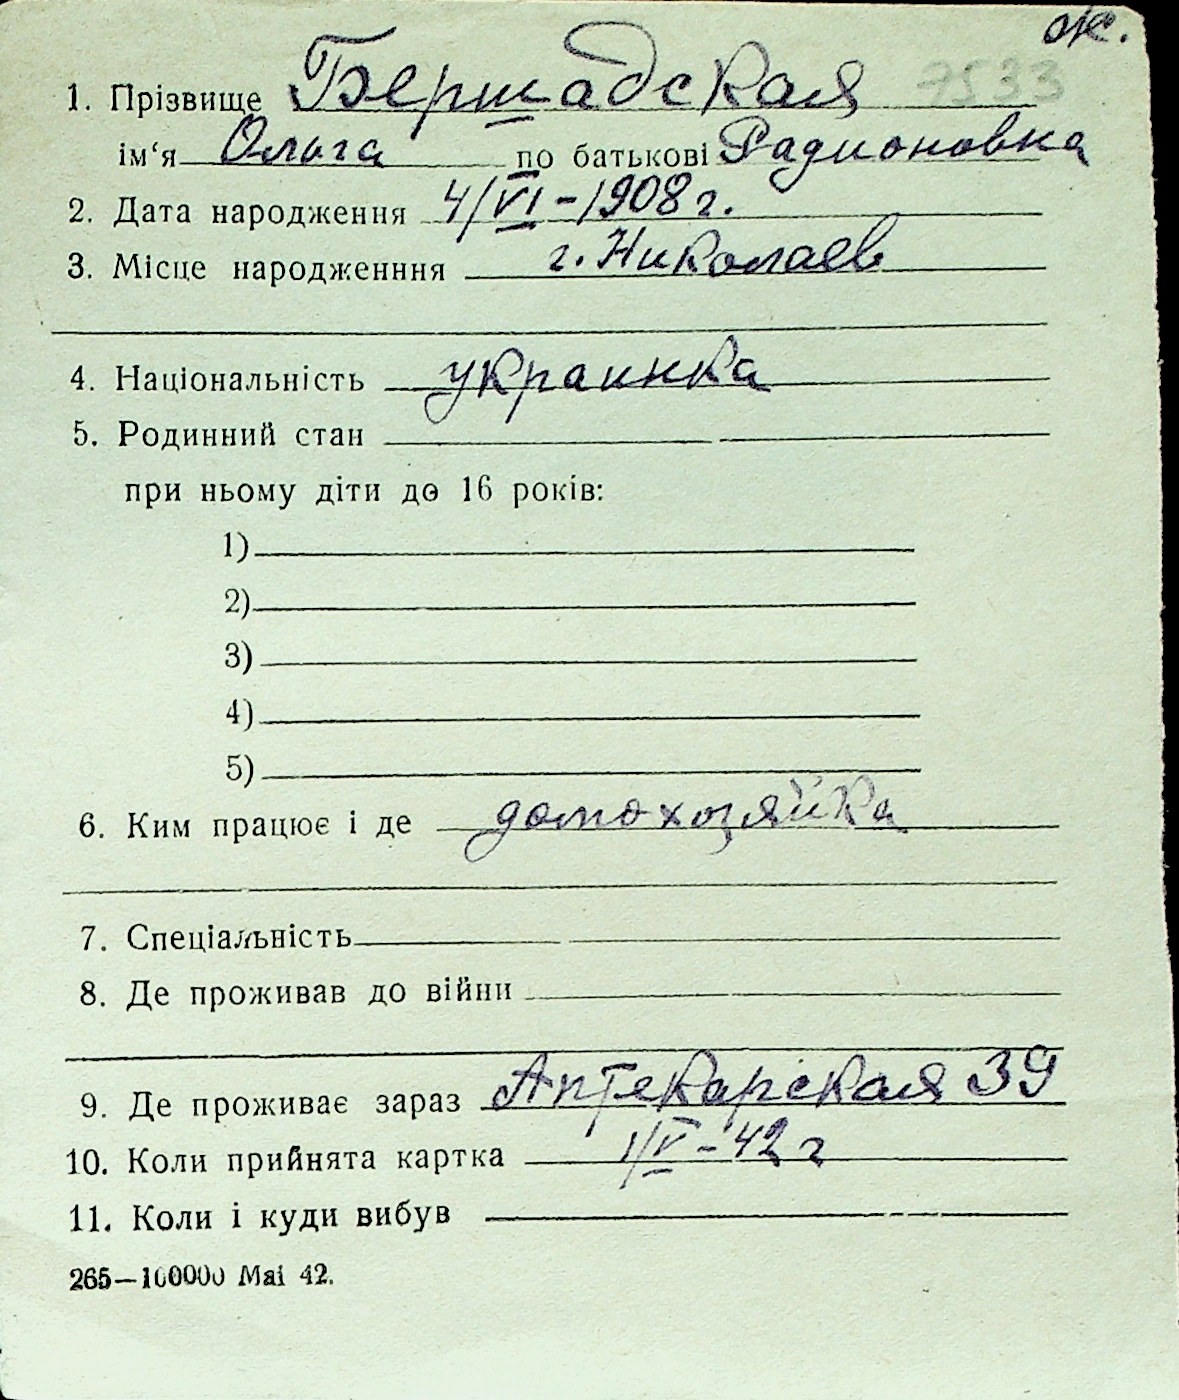 ж.
7533
1. Прізвище Бершадская
ім‘я Ольга по батькові Радионовна
2. Дата народження 4/VI-1908 г.
3. Місце народженння г. Николаев
4. Національність украинка
5. Родинний стан
при ньому діти до 16 років:
1)
2)
3)
4)
5)
6. Ким працює і де домохозяйка
7. Спеціальність
8. Де проживав до війни
9. Де проживає зараз Аптекарская 39
10. Коли прийнята картка 1/V-42 г
11. Коли і куди вибув
265—100000 Mai 42.